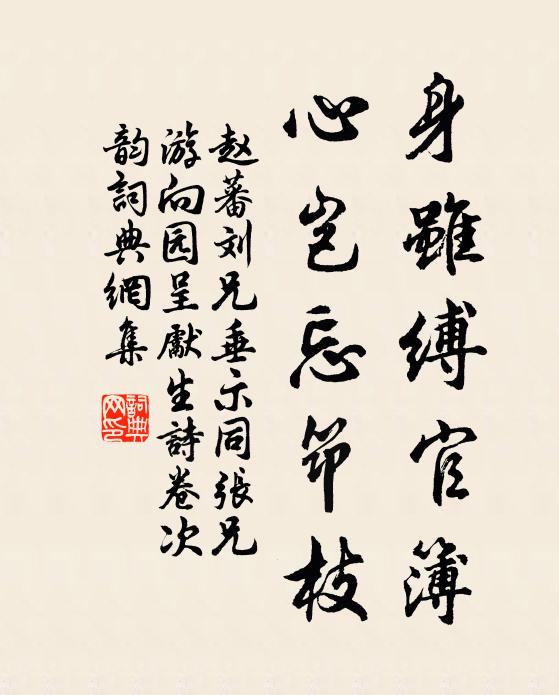 身雖縛官簿
心豈忘筇枝
赵蕃刘兄垂示同張兄
游向园呈獻生詩卷次
韵詞典網集
詞典
网印